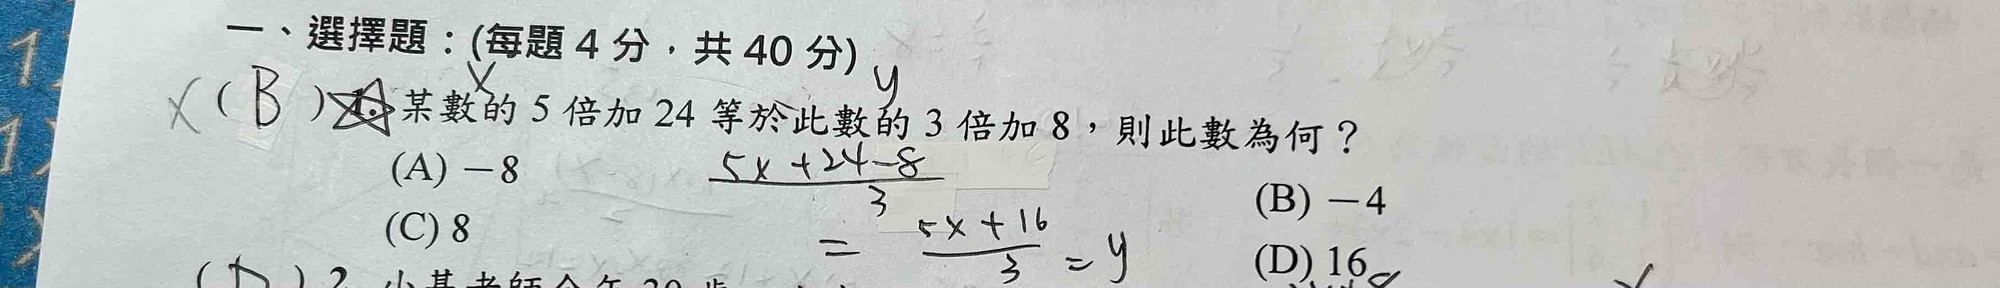 一、選擇題：(每題 4 分，共 40 分)
x y
x ( B ) 1. 某數的 5 倍加 24 等於此數的 3 倍加 8，則此數為何？
(A) －8 (B) －4
5x+24-8
3
(C) 8 (D) 16
= 5x+16
3 = y
( D ) 2.